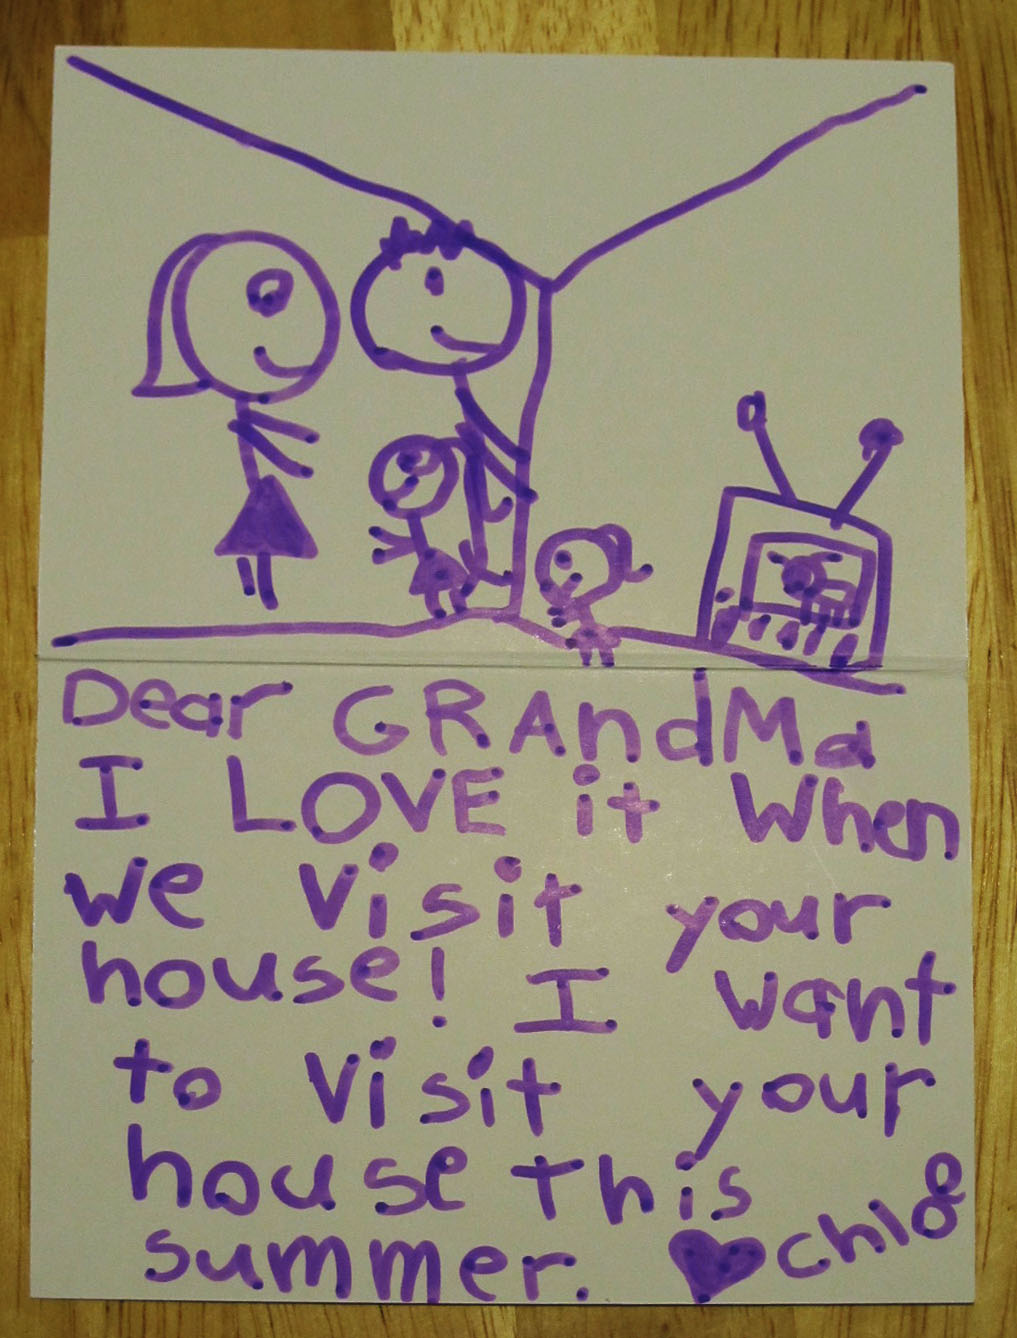 Dear GRAndMa
I LOVE it When
we visit your
house! I want
to visit your
house this
summer. ♥ chloe